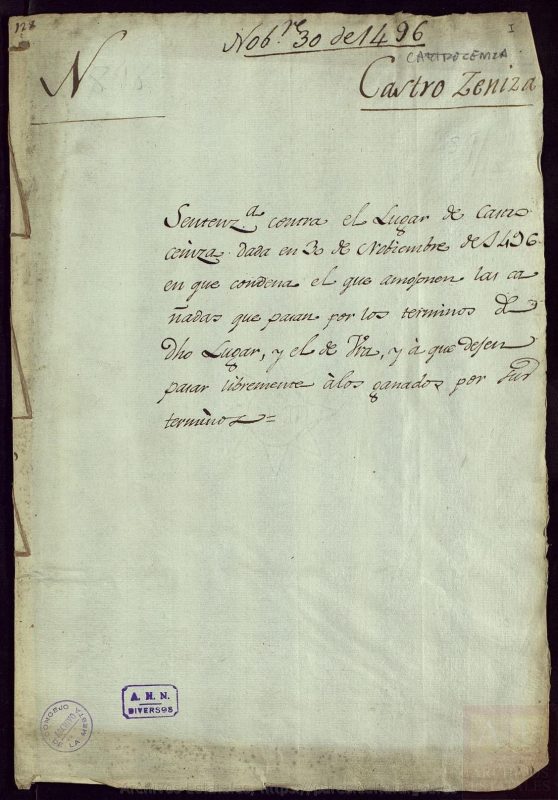 128
Nob.re 30 de 1496
I
N
CASTROCENIZA
Castro Zeniza
Sentenz.a contra el Lugar de Castr.
ceniza dada en 30 de Nobiembre de 1496
en que condena el que amojonen las ca
ñadas que pasan por los terminos de
Dho Lugar, y el de Vra, y à que dejen
pasar libremente àlos ganados por sus
terminos =
CONCEJO DE LA MESTA
ARCHIVO
A. H. N.
DIVERSOS